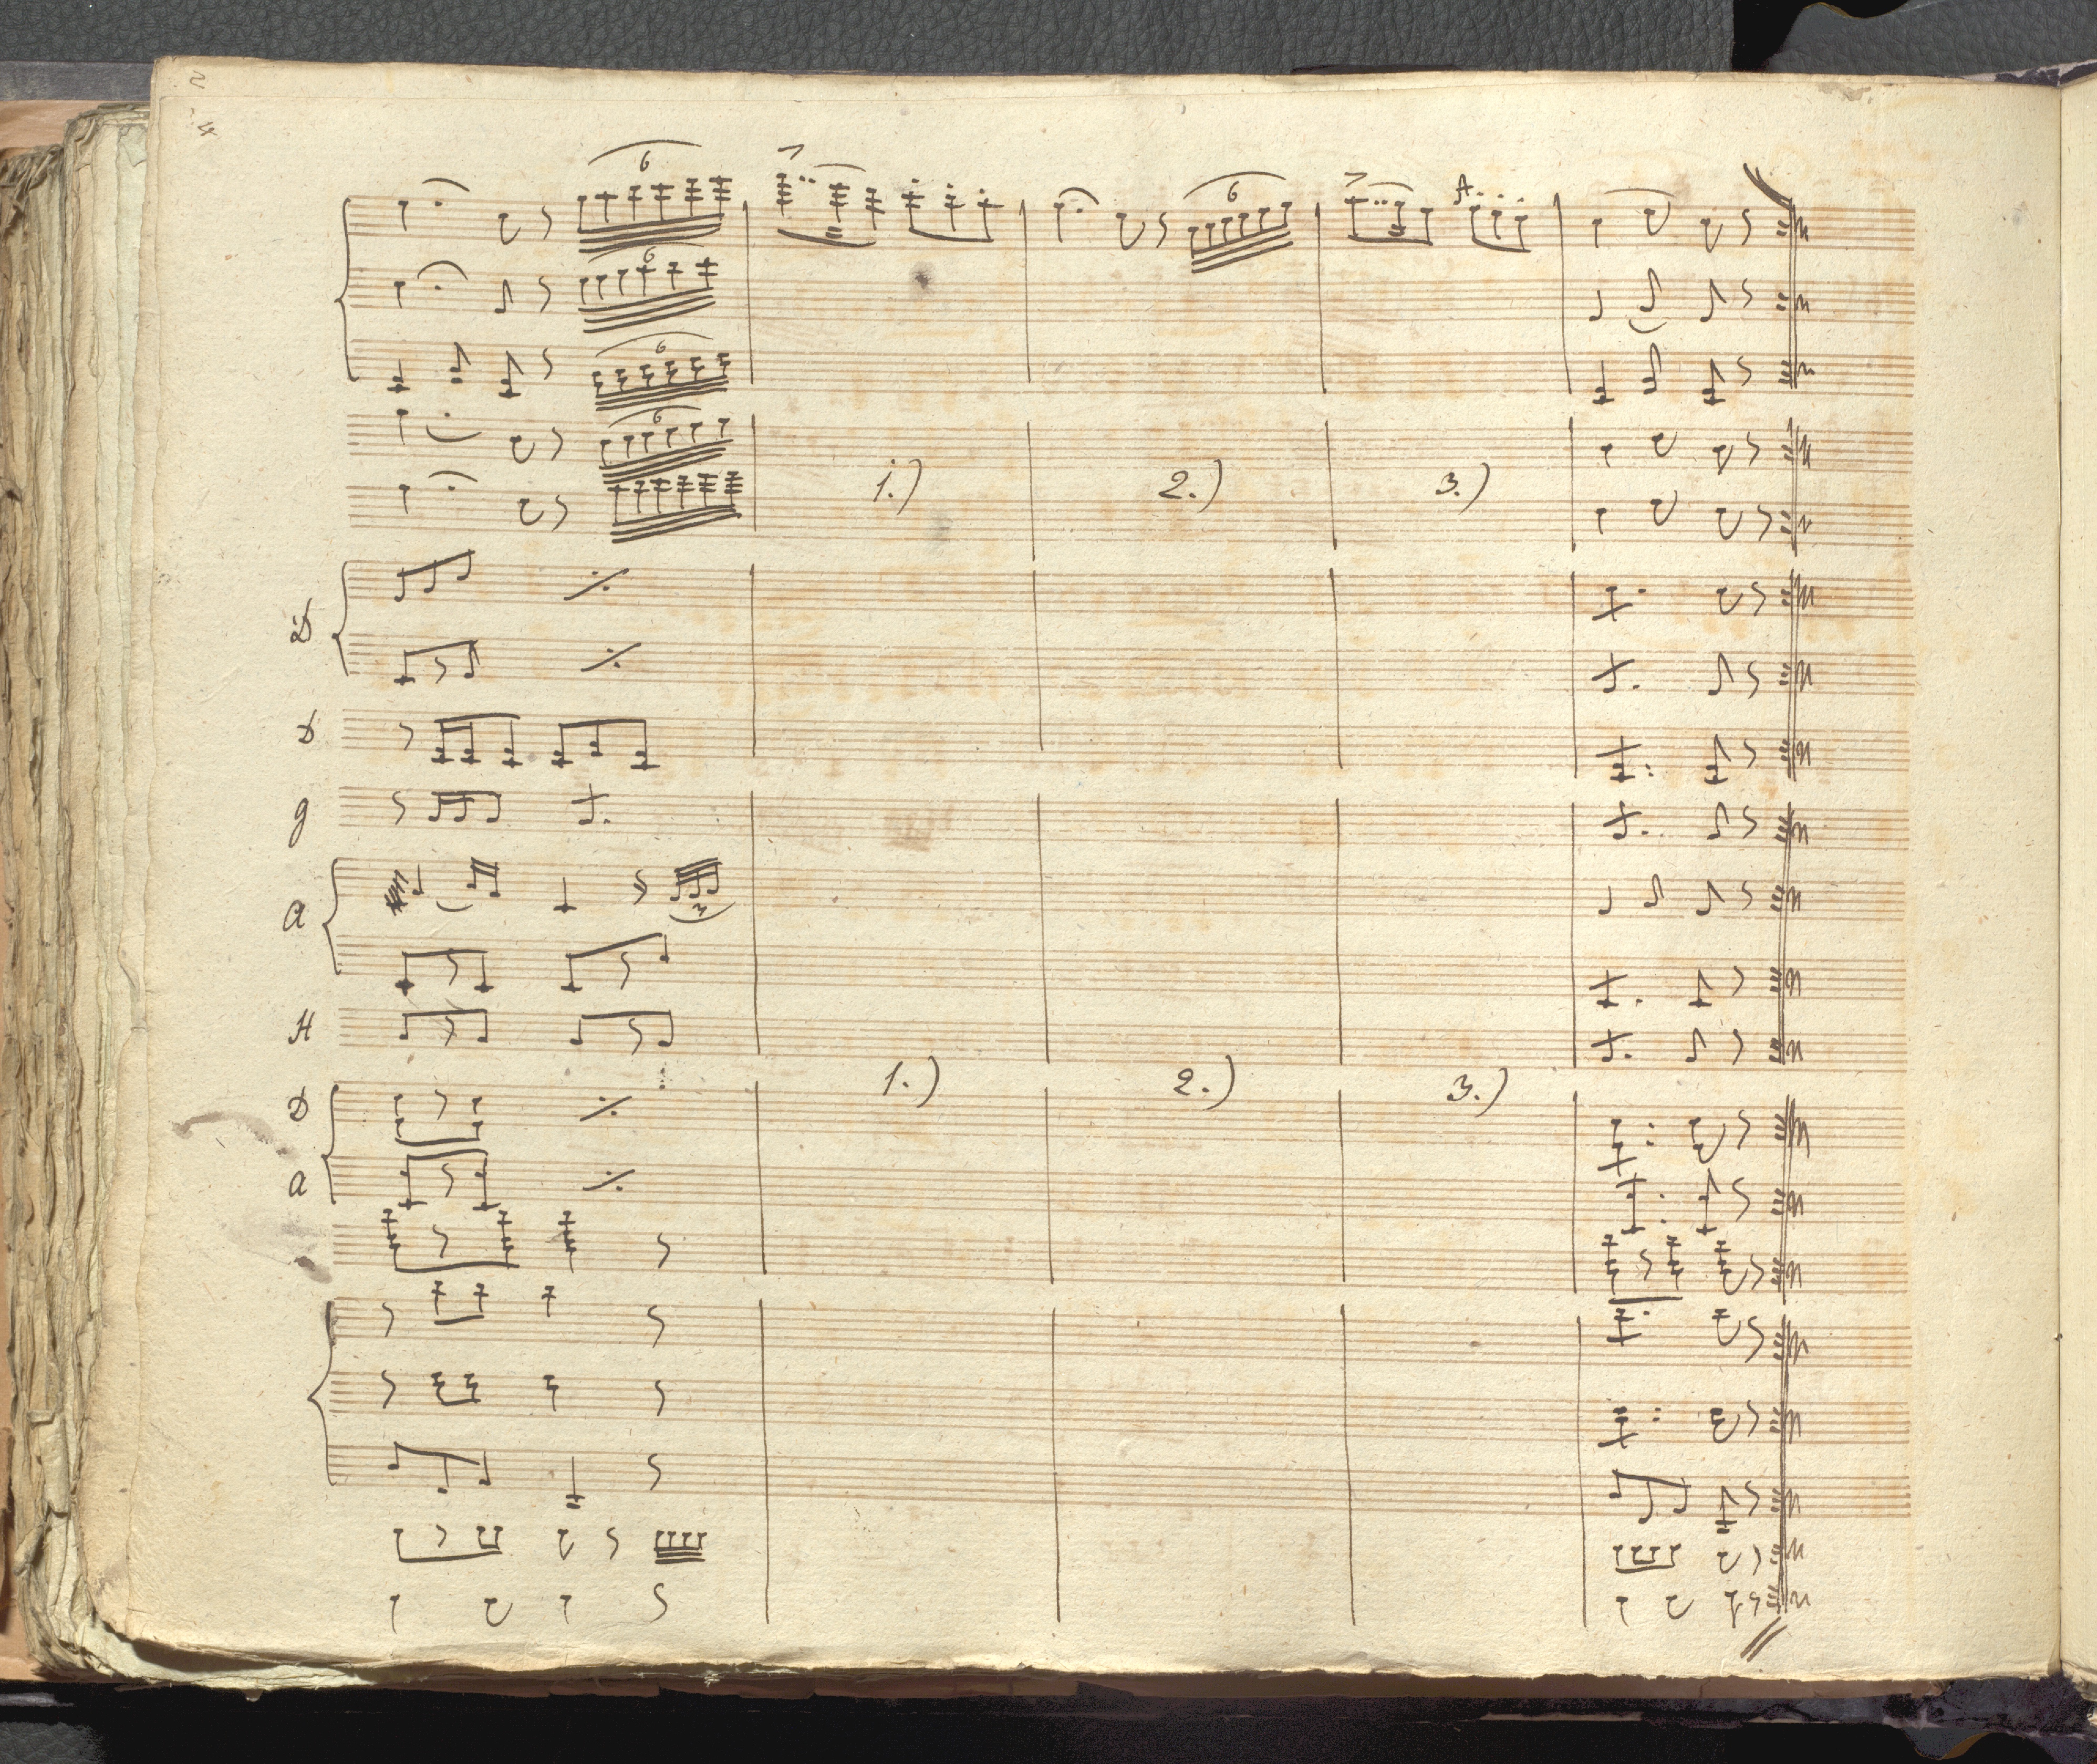 6
6
6
A
6
6
1.) 2.) 3.)
D
D
g
a
3
H
1.) 2.) 3.)
D
a